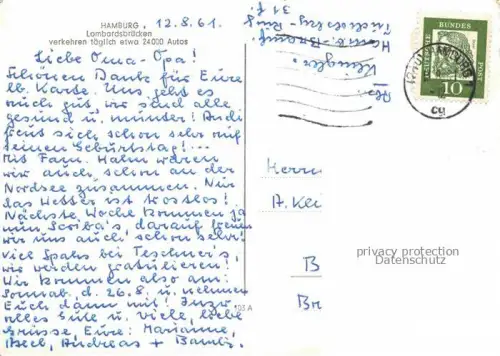 HAMBURG,
Lombardsbrücken
verkehren täglich etwa 24000 Autos
12.8.61.
Liebe Oma + Opa!
Schönen Dank für Eure
lb. Karte. Uns geht es
auch gut, wir sind alle
gesund u. munter! Andi
freut sich schon sehr auf
seinen Geburtstag!...
Mit Fam. Hahn waren
wir auch schon an der
Nordsee zusammen. Nur
das Wetter ist trostlos!
Nächste Woche kommen ja
nun Scriba's, darauf freuen
wir uns auch schon sehr!
Viel Spaß bei Teschner's,
wir werden gratulieren!
Wir kommen also am
Sonnab. d. 26.8. u. nehmen
Euch dann mit!
alles Gute u. viele, liebe
Grüsse, Eure: Marianne,
Andreas + Bambi.
103 A
Abs.
Klingler.
31
DEUTSCHE
BUNDES
POST
10
HAMBURG
cg
Herrn
A. Kei
B
Br
privacy protection
Datenschutz